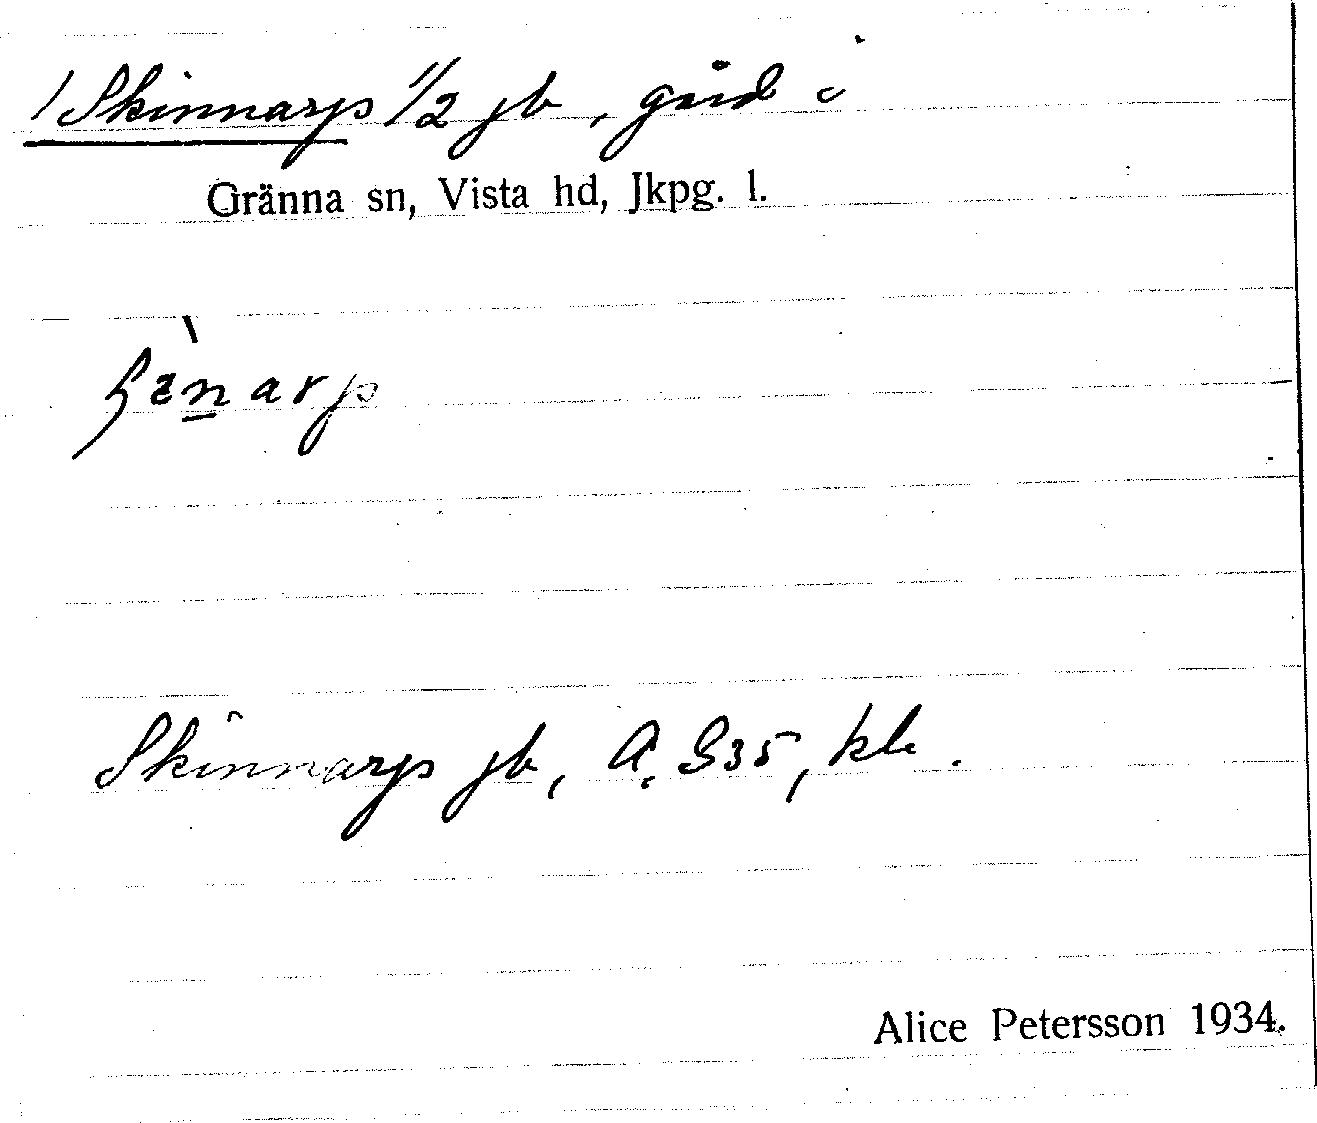 1 Skinnarp 1/2 jb, gård i
Gränna sn, Vista hd, Jkpg. l.
Skinnarp jb, A. G35, kb.
Alice Petersson 1934.